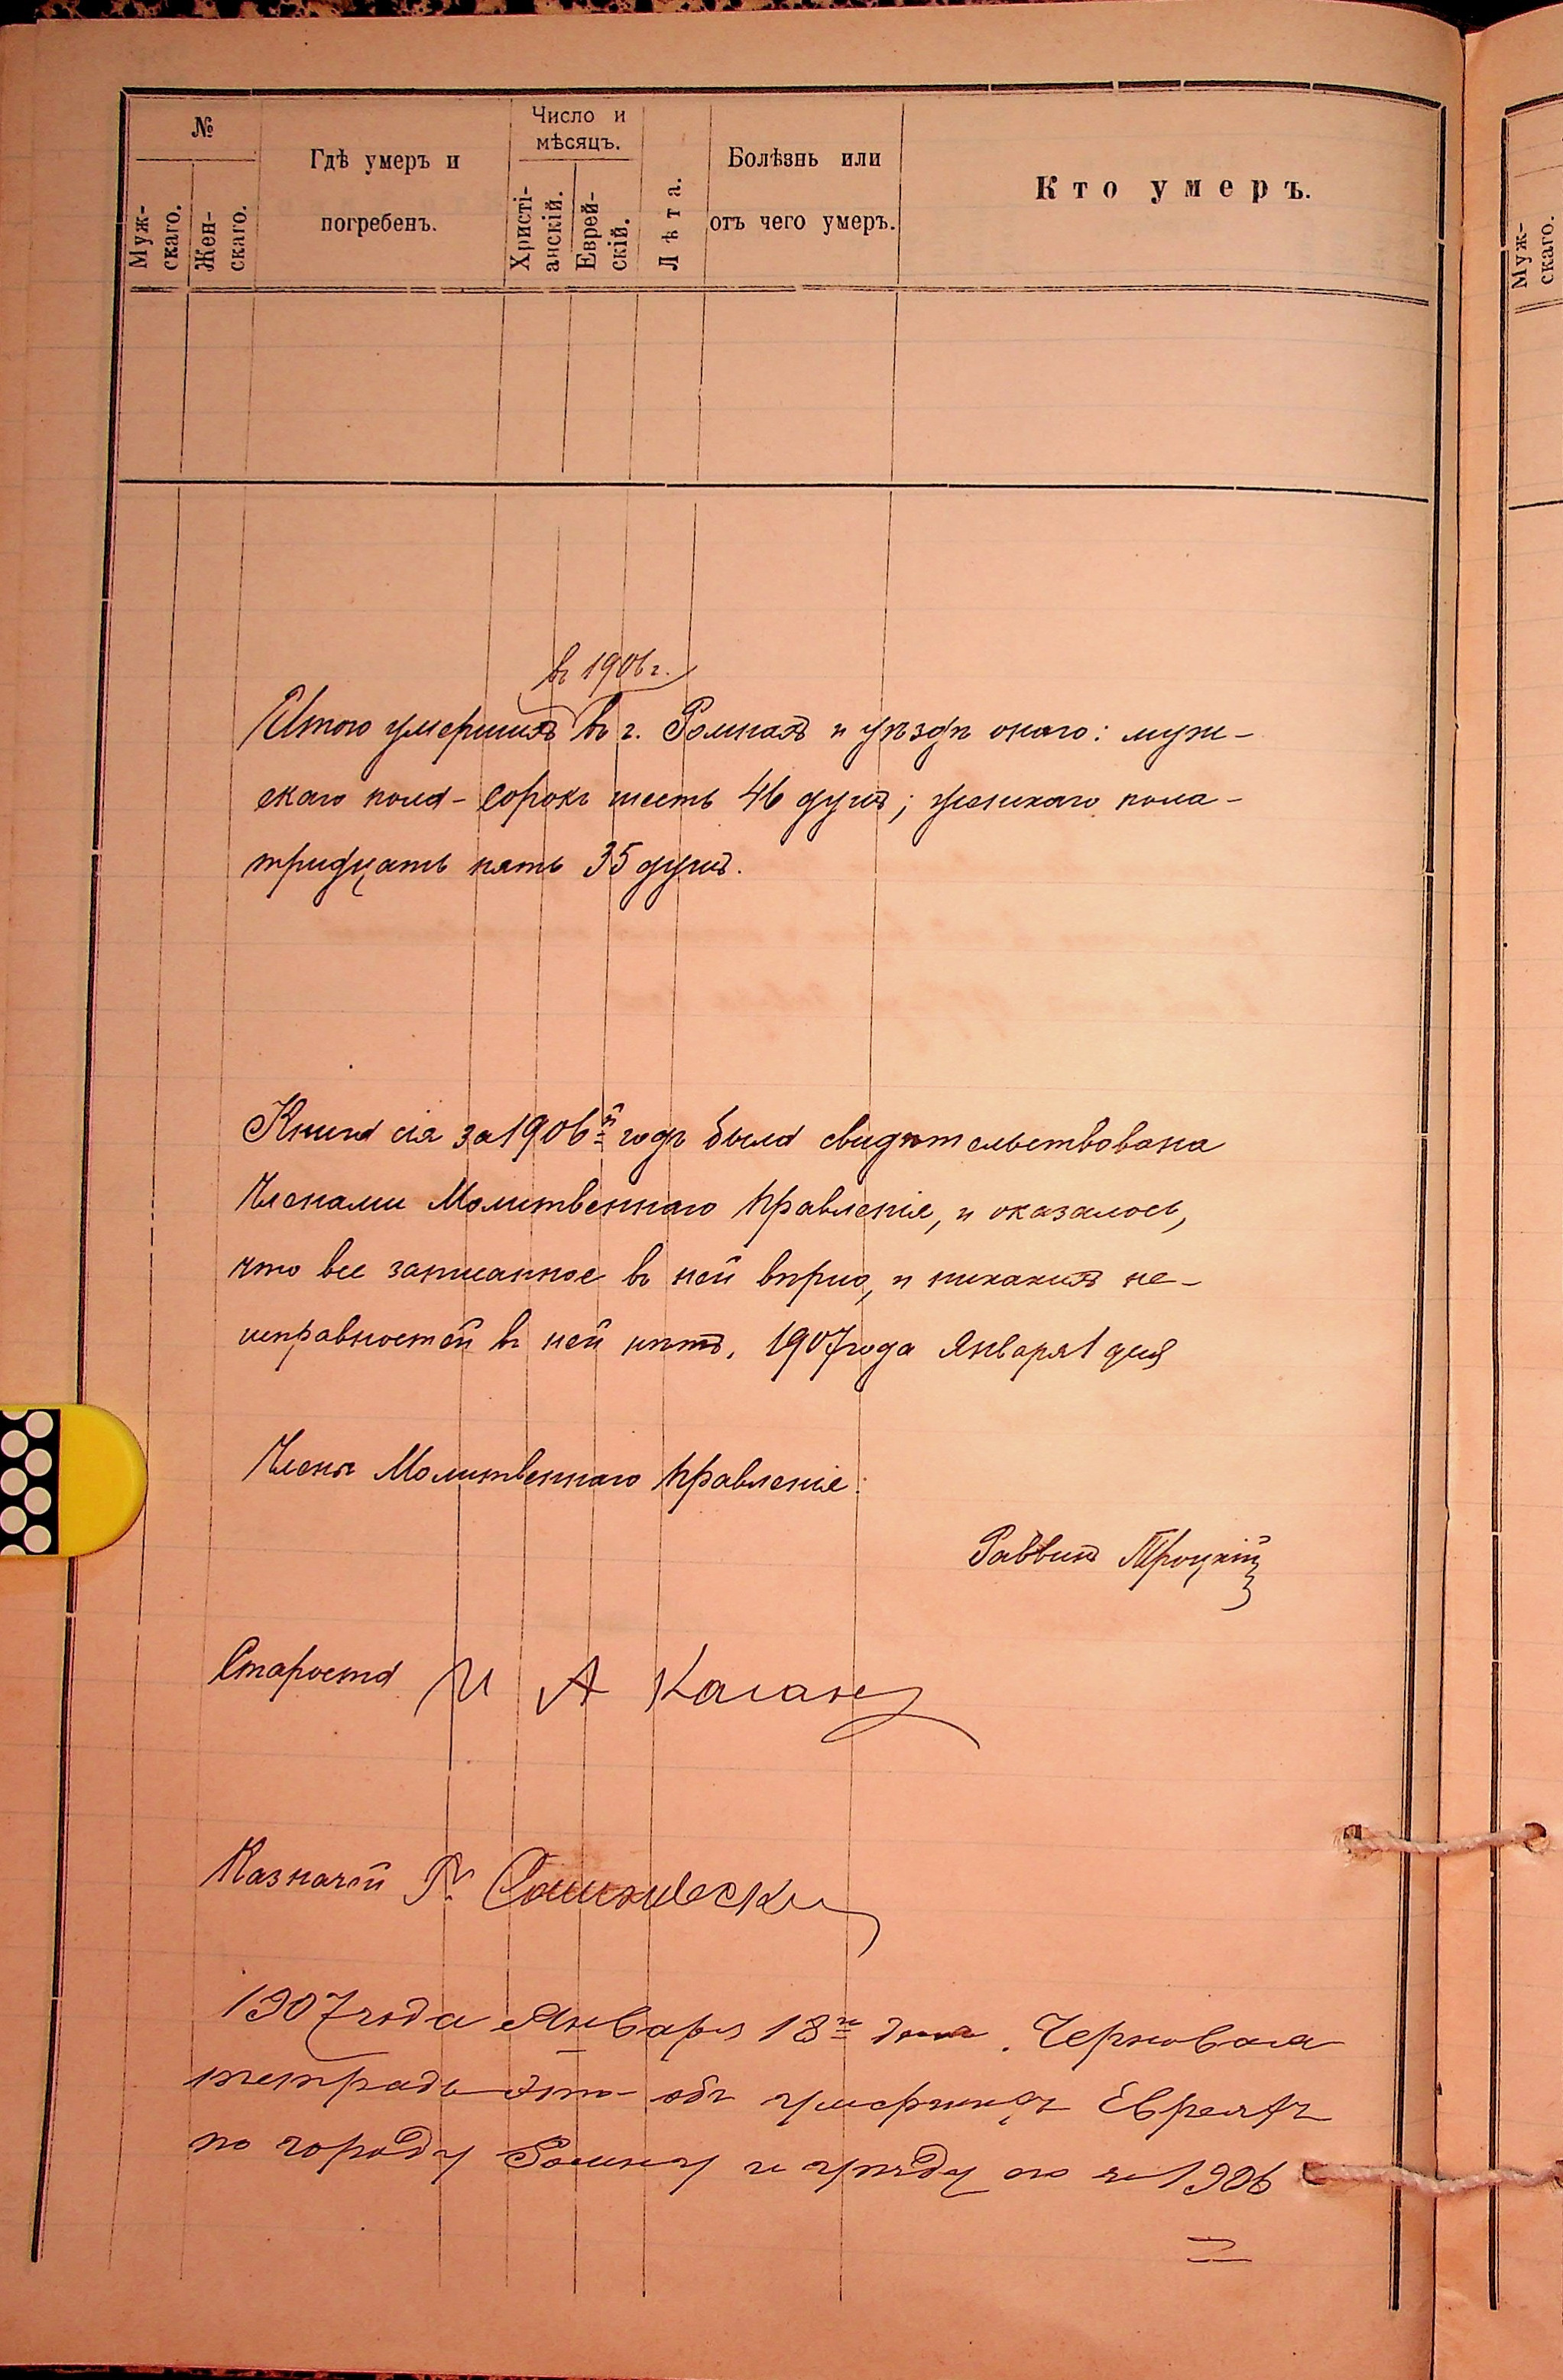 №
Муж-
скаго.
Жен-
скаго.
Гдѣ умеръ и
погребенъ.
Число и
мѣсяцъ.
Христі-
анскій.
Еврей-
скій.
Лѣта.
Болѣзнь или
отъ чего умеръ.
Кто умеръ.
Муж-
скаго.
въ 1906 г.
Итого умершихъ въ г. Ромнахъ и уѣздѣ онаго: муж-
скаго пола - сорокъ шесть 46 душъ; женскаго пола -
тридцать пять 35 душъ.
Книга сія за 1906й годъ была свидѣтельствована
Членами Молитвеннаго Правленія, и оказалось,
что все записанное въ ней вѣрно, и никакихъ не-
исправностей въ ней нѣтъ, 1907 года Января 1 дня
Члены Молитвеннаго Правленія:
Раввинъ Троцкій
Староста И А Каганъ
Казначей Г.
1907 года Января 18 дня. Черновая
тетрадь эта объ умершихъ Евреяхъ
по городу Ромну и уѣзду его за 1906